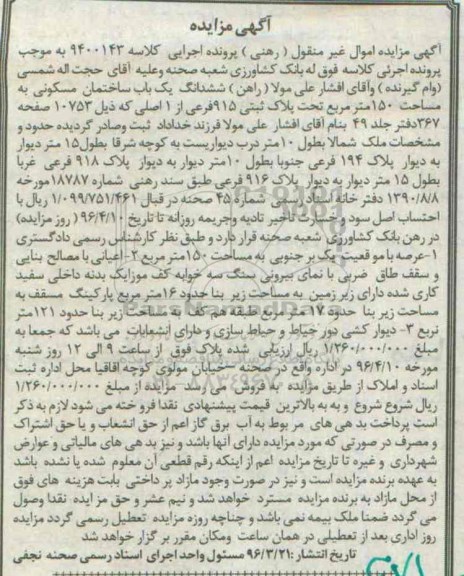 آگهی مزایده
آگهی مزایده اموال غیر منقول ( رهنی ) پرونده اجرایی کلاسه ۹۴۰۰۱۴۳ به موجب
پرونده اجرئی کلاسه فوق له بانک کشاورزی شعبه صحنه وعلیه آقای حجت اله شمسی
(وام گیرنده ) وآقای افشار علی مولا ( راهن ) ششدانگ یک باب ساختمان مسکونی به
مساحت ۱۵۰متر مربع تحت پلاک ثبتی ۹۱۵فرعی از ۱ اصلی که ذیل ۱۰۷۵۳ صفحه
۳۶۷دفتر جلد ۴۹ بنام آقای افشار علی مولا فرزند خداداد ثبت وصادر گردیده حدود و
مشخصات ملک شمالا بطول ۱۰متر درب دیواریست به کوچه شرقا بطول۱۵ متر دیوار
به دیوار پلاک ۱۹۴ فرعی جنوبا بطول ۱۰متر دیوار به دیوار پلاک ۹۱۸ فرعی غربا
بطول ۱۵ متر دیوار به دیوار پلاک ۹۱۶ فرعی طبق سند رهنی شماره ۱۸۷۸۷مورخه
۱۳۹۰/۸/۸ دفتر خانه اسناد رسمی شماره ۴۵ صحنه در قبال ۱/۰۹۹/۷۵۱/۴۶۱ ریال با
احتساب اصل سود و خسارت تاخیر تادیه وجریمه روزانه تا تاریخ ۹۶/۴/۱۰( روز مزایده)
در رهن بانک کشاورزی شعبه صحنه قرار دارد و طبق نظر کارشناس رسمی دادگستری
۱-عرصه با موقعیت یک بر جنوبی به مساحت ۱۵۰متر مربع ۲-اعیانی با مصالح بنایی
و سقف طاق ضربی با نمای بیرونی سنگ سه خوابه کف موزایک بدنه داخلی سفید
کاری شده دارای زیر زمین به مساحت زیر بنا حدود ۱۶متر مربع پارکینگ مسقف به
مساحت زیر بنا حدود ۱۷ متر مربع طبقه هم کف به مساحت زیر بنا حدود ۱۲۱متر
نربع ۳- دیوار کشی دور حیاط و حیاط سازی و دارای انشعابات می باشد که جمعا به
مبلغ ۱/۲۶۰/۰۰۰/۰۰۰ ریال ارزیابی شده پلاک فوق از ساعت ۹ الی ۱۲ روز شنبه
مورخه ۹۶/۴/۱۰ در اداره واقع در صحنه –خیابان مولوی کوچه اقاقیا محل اداره ثبت
اسناد و املاک از طریق مزایده به فروش می رسد مزایده از مبلغ ۱/۲۶۰/۰۰۰/۰۰۰
ریال شروع شروع و به به بالاترین قیمت پیشنهادی نقدا فرو خته می شود لازم به ذکر
است پرداخت بد هی های مر بوط به آب برق گاز اعم از حق انشعاب و یا حق اشتراک
و مصرف در صورتی که مورد مزایده دارای آنها باشد و نیز بد هی های مالیاتی و عوارض
شهرداری و غیره تا تاریخ مزایده اعم از اینکه رقم قطعی آن معلوم شده یا نشده باشد
به عهده برنده مزایده است و نیز در صورت وجود مازاد پر داختی بابت هزینه های فوق
از محل مازاد به برنده مزایده مسترد خواهد شد و نیم عشر و حق مز ایده نقدا وصول
می گردد ضمنا ملک بیمه نمی باشد و چناچه روزه مزایده تعطیل رسمی گردد مزایده
روز اداری بعد از تعطیلی در همان ساعت ومکان مقرر بر گزار خواهد شد
تاریخ انتشار :۹۶/۳/۲۱ مسئول واحد اجرای اسناد رسمی صحنه نجفی